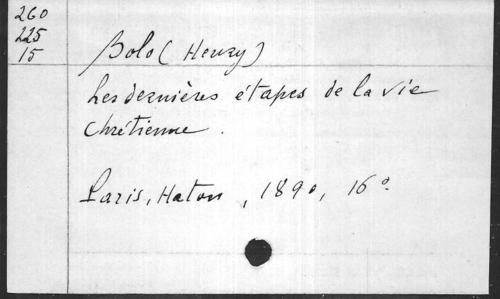 260
225
15
Bolo (Henry)
Les dernières étapes de la vie
chrétienne.
Paris, Haton, 1890, 16°.